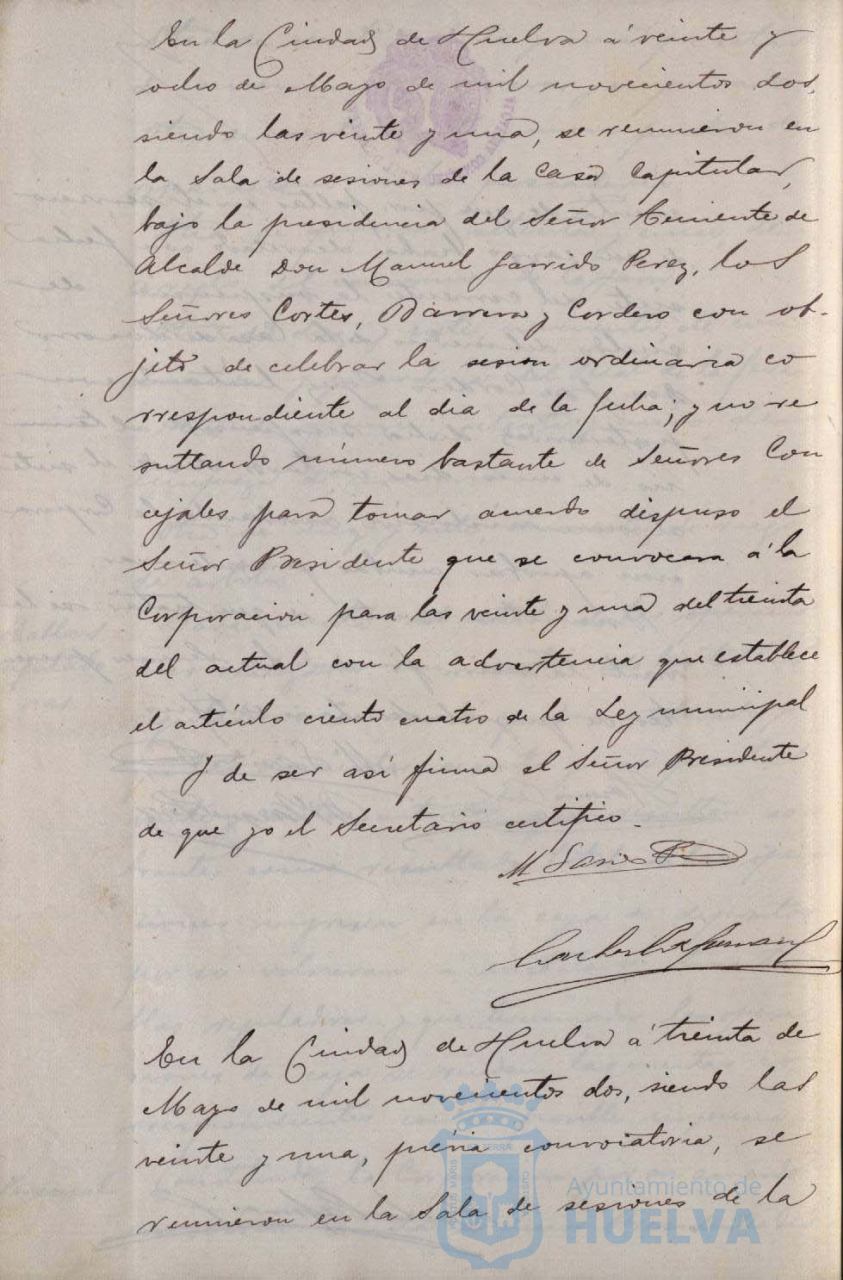 En la Ciudad de Huelva á veinte y
ocho de Mayo de mil novecientos dos,
siendo las veinte y una, se reunieron en
la Sala de sesiones de la Casa Capitular,
bajo la presidencia del Señor Teniente de
Alcalde Don Manuel Garrido Perez, los
Señores Cortes, Barrera y Cordero con ob-
jeto de celebrar la sesion ordinaria co
rrespondiente al dia de la fecha; y no re
sultando número bastante de Señores Con
cejales para tomar acuerdo dispuso el
Señor Presidente que se convocara á la
Corporacion para las veinte y una del treinta
del actual con la advertencia que establece
el artículo ciento cuatro de la Ley municipal
Y de ser así firma el Señor Presidente
de que yo el Secretario certifico.
M Garrido P
En la Ciudad de Huelva á treinta de
Mayo de mil novecientos dos, siendo las
veinte y una, prévia convocatoria, se
reunieron en la Sala de sesiones de la
Ayuntamiento de
HUELVA